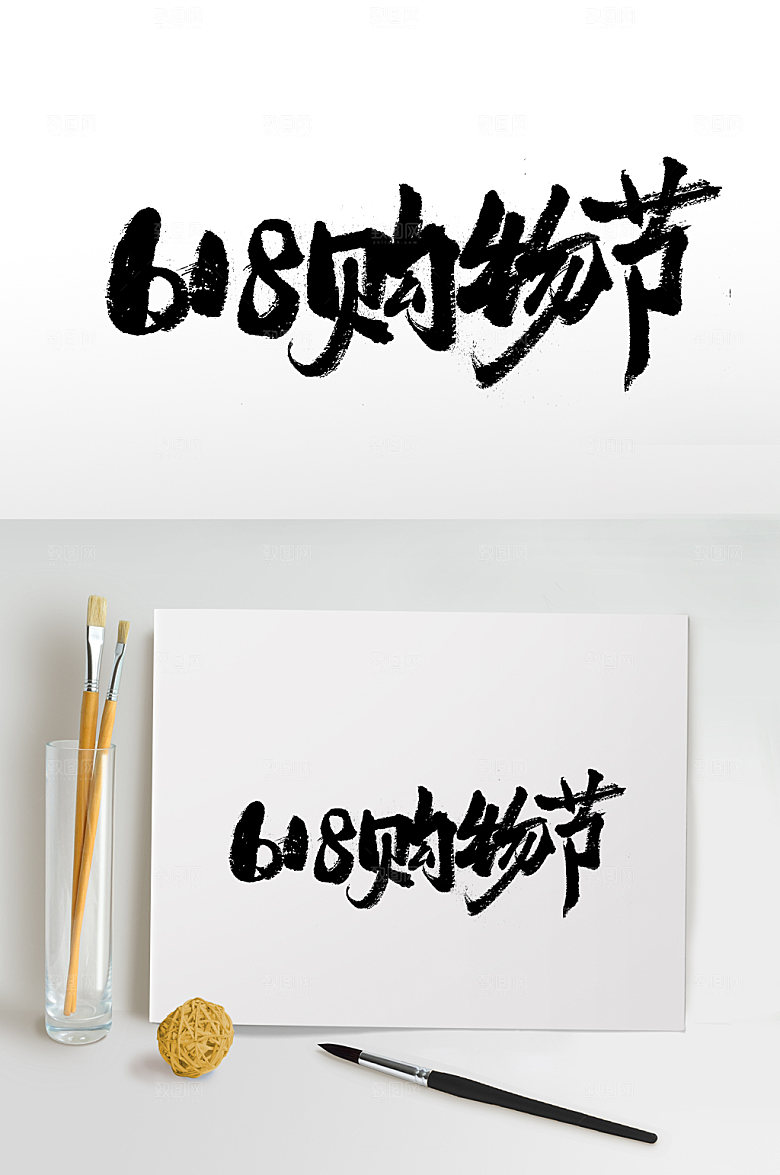 618购物节
618购物节